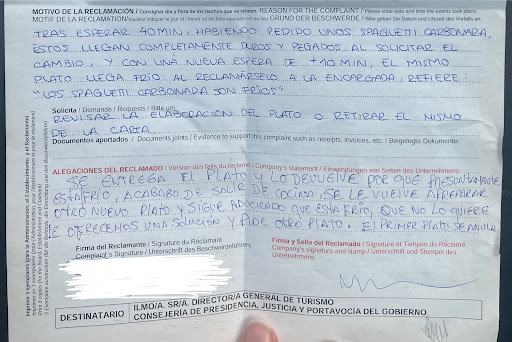 MOTIVO DE LA RECLAMACIÓN / Consignar día y hora de los hechos que se relatan. REASON FOR THE COMPLAINT / Please state date and time the events took place.
MOTIF DE LA RÉCLAMATION / GRUND DER BESCHWERDE / Bitte geben Sie Datum und Uhrzeit des Vorfalls an
TRAS ESPERAR 40MIN, HABIENDO PEDIDO UNOS SPAGUETTI CARBONARA,
ESTOS LLEGAN COMPLETAMENTE DUROS Y PEGADOS. AL SOLICITAR EL
CAMBIO, Y CON UNA NUEVA ESPERA DE +10MIN, EL MISMO
PLATO LLEGA FRÍO. AL RECLAMÁRSELO A LA ENCARGADA, REFIERE:
"LOS SPAGUETTI CARBONARA SON FRÍOS"
Solicita / Demande / Requests / Bitte um:
REVISAR LA ELABORACIÓN DEL PLATO O RETIRAR EL MISMO
DE LA CARTA.
Documentos aportados / Documents joints / Evidence to support this complaint such as receipts, invoices, etc. / Beigelegte Dokumente:
ALEGACIONES DEL RECLAMADO / Version des faits du réclamé / Company's statement / Einwendungen von Seiten des Unternehmens:
SE ENTREGA EL PLATO Y LO DEVUELVE POR QUE PRESUNTAMENTE
ESTA FRIO, ACABABO DE SALIR DE COCINA, SE LE VUELVE A PREPARAR
OTRO NUEVO PLATO Y SIGUE ADUCIENDO QUE ESTA FRIO, QUE NO LO QUIERE
LE OFRECEMOS UNA SOLUCIÓN Y PIDE OTRO PLATO. EL PRIMER PLATO SE ANULA
Firma del Reclamante / Signature du Réclamant
Complaint's Signature / Unterschrift des Beschwerdeführers
Firma y Sello del Reclamado / Signature et Tampon du Réclamé
Company's signature and stamp / Unterschrift und Stempel des
Unternehmens
DESTINATARIO
ILMO/A. SR/A. DIRECTOR/A GENERAL DE TURISMO
CONSEJERÍA DE PRESIDENCIA, JUSTICIA Y PORTAVOCÍA DEL GOBIERNO